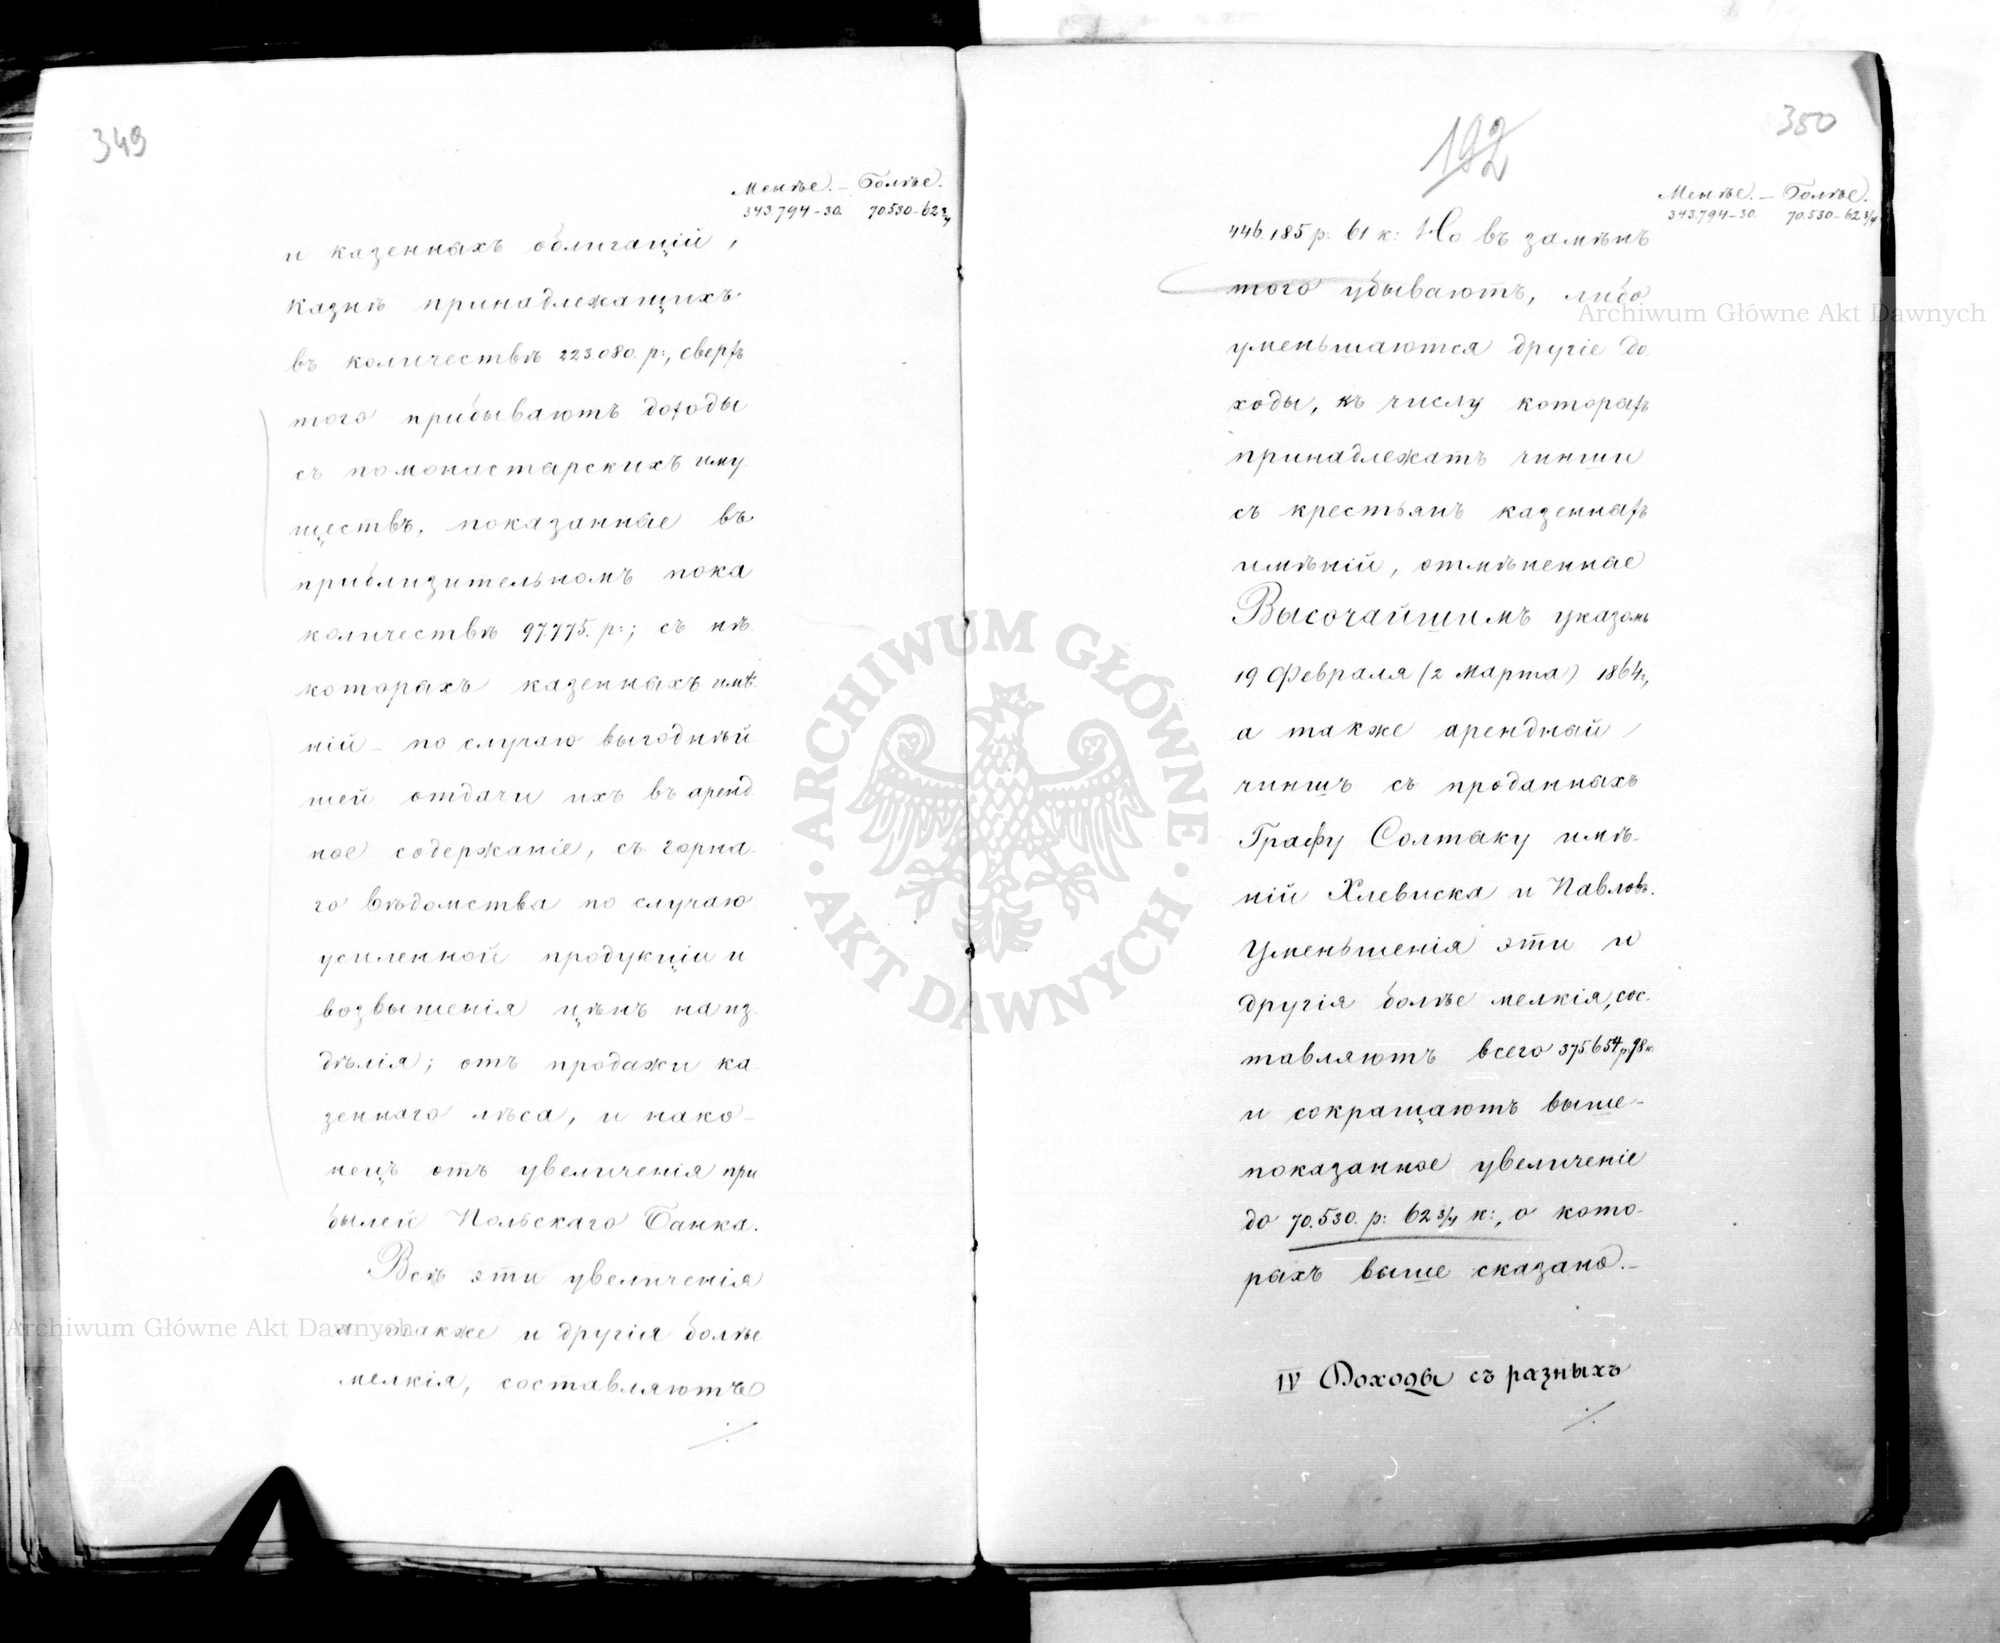 349
Менѣе. – Болѣе.
343.794-30. 70.530-62 3/4
и казенныхъ облигацій,
казнѣ принадлежащихъ
въ количествѣ 223.080. р:, сверхъ
того прибываютъ доходы
съ помонастырскихъ иму-
ществъ, показанные въ
приблизительномъ пока
количествѣ 97.775. р:; съ нѣ-
которыхъ казенныхъ имѣ-
ній – по случаю выгоднѣй-
шей отдачи ихъ въ аренд-
ное содержаніе, съ горна-
го вѣдомства по случаю
усиленной продукціи и
возвышенія цѣнъ на из-
дѣлія; отъ продажи ка-
зеннаго лѣса, и нако-
нецъ отъ увеличенія при
былей Польскаго Банка.
Всѣ эти увеличенія
а также и другія болѣе
мелкія, составляютъ
./.
192
350
Менѣе. – Болѣе.
343.794-30. 70.530-62 3/4
446.185 р: 61 к: Но въ замѣнъ
того убываютъ, либо
уменьшаются другіе до-
ходы, къ числу которыхъ
принадлежатъ чинши
съ крестьянъ казенныхъ
имѣній, отмѣненные
Высочайшимъ указомъ
19 Февраля (2 Марта) 1864 г.,
а также арендный
чиншъ съ проданныхъ
Графу Солтыку имѣ-
ній Хлевиска и Павловъ.
Уменьшенія эти и
другія болѣе мелкія, сос-
тавляютъ всего 375.654 р 98 к
и сокращаютъ выше-
показанное увеличеніе
до 70.530. р: 62 3/4 к:, о кото-
рыхъ выше сказано.–
IV Доходы съ разныхъ
./.
Archiwum Główne Akt Dawnych
Archiwum Główne Akt Dawnych
· ARCHIWUM GŁÓWNE · AKT DAWNYCH